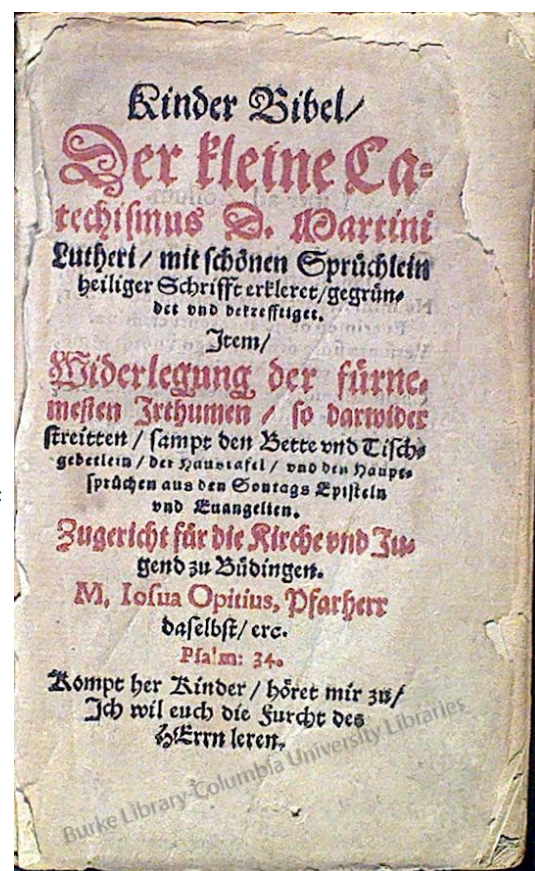 Kinder Bibel/
Der kleine Ca-
techismus D. Martini
Lutheri / mit schönen Sprüchlein
heiliger Schrifft erkleret/gegrün-
det vnd bekrefftiget.
Item/
Widerlegung der fürne-
mesten Irthumen / so darwider
streitten / sampt den Bette vnd Tisch-
gebetlein / der Haustafel / vnd den Haupt-
sprüchen aus den Sontags Episteln
vnd Euangelien.
Zugericht für die Kirche vnd Ju-
gend zu Büdingen.
M. Iosua Opitius, Pfarherr
daselbst/ etc.
Psalm: 34.
Kompt her Kinder / höret mir zu/
Ich wil euch die Furcht des
HErrn leren.
Burke Library Columbia University Libraries